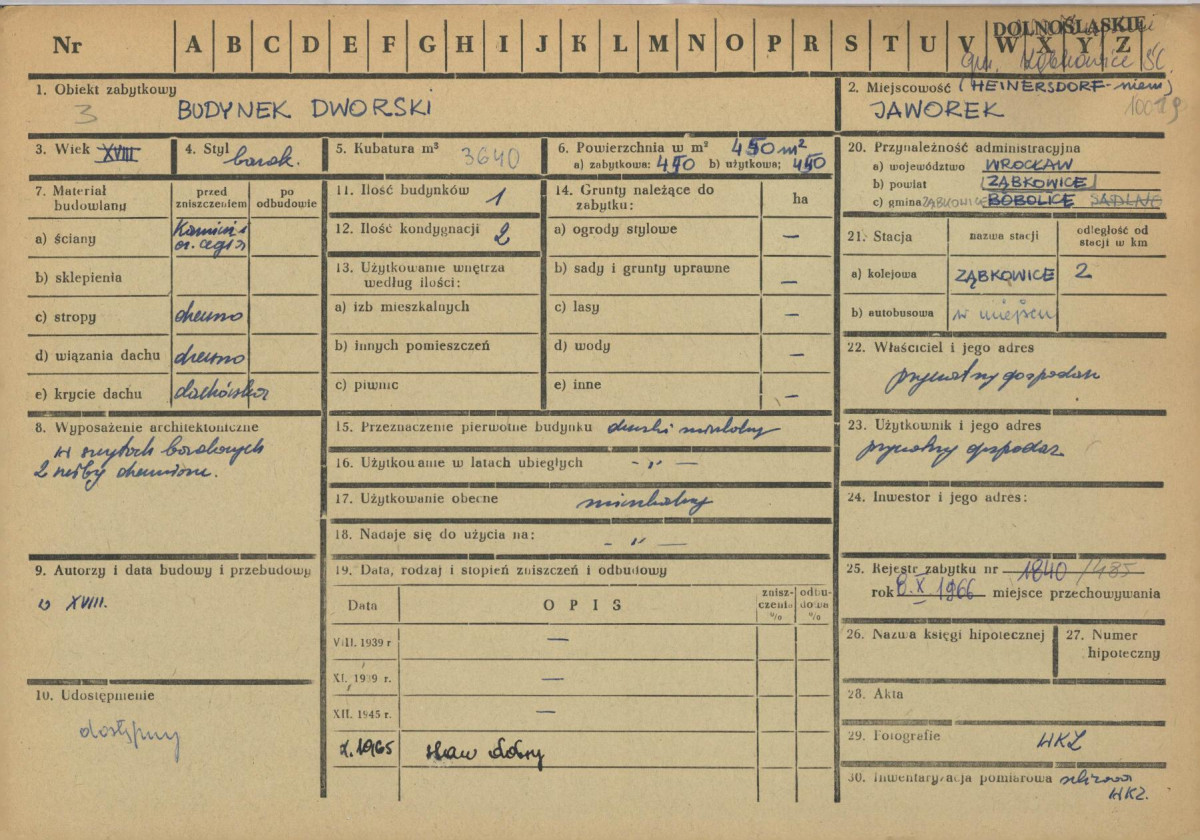 Nr A B C D E F G H I J K L M N O P R S T U V W X Y Z
DOLNOŚLĄSKIE
gm. Ząbkowice Śl.
1. Obiekt zabytkowy
3 BUDYNEK DWORSKI
2. Miejscowość (HEINERSDORF-niem)
JAWOREK
3. Wiek XVIII
4. Styl barok.
5. Kubatura m³ 3640
6. Powierzchnia w m² 450 m²
a) zabytkowa: 450 b) użytkowa: 450
20. Przynależność administracyjna
a) województwo WROCŁAW
b) powiat ZĄBKOWICE
c) gmina ZĄBKOWICE BOBOLICE SADLNO
7. Materiał budowlany
przed zniszczeniem
po odbudowie
a) ściany Kamień i cegła
b) sklepienia
c) stropy drewno
d) wiązania dachu drewno
e) krycie dachu dachówka
11. Ilość budynków 1
12. Ilość kondygnacji 2
13. Użytkowanie wnętrza według ilości:
a) izb mieszkalnych
b) innych pomieszczeń
c) piwnic
14. Grunty należące do zabytku: ha
a) ogrody stylowe —
b) sady i grunty uprawne —
c) lasy —
d) wody —
e) inne —
21. Stacja
nazwa stacji
odległość od stacji w km
a) kolejowa ZĄBKOWICE 2
b) autobusowa w miejscu
22. Właściciel i jego adres
prywatny gospodarz
8. Wyposażenie architektoniczne
w szczytach barokowych
2 rzeźby drewniane.
15. Przeznaczenie pierwotne budynku dworski mieszkalny
16. Użytkowanie w latach ubiegłych - „ —
17. Użytkowanie obecne mieszkalny
18. Nadaje się do użycia na: - „ —
23. Użytkownik i jego adres
prywatny gospodarz
24. Inwestor i jego adres:
9. Autorzy i data budowy i przebudowy
w XVIII.
19. Data, rodzaj i stopień zniszczeń i odbudowy
Data OPIS zniszczenia % odbudowa %
VIII. 1939 r —
XI. 1939 r. —
XII. 1945 r. —
X. 1965 stan dobry
25. Rejestr zabytku nr 1840 /485
rok 8.X 1966 miejsce przechowywania
26. Nazwa księgi hipotecznej
27. Numer hipoteczny
10. Udostępnienie
dostępny
28. Akta
29. Fotografie WKZ
30. Inwentaryzacja pomiarowa
WKZ.